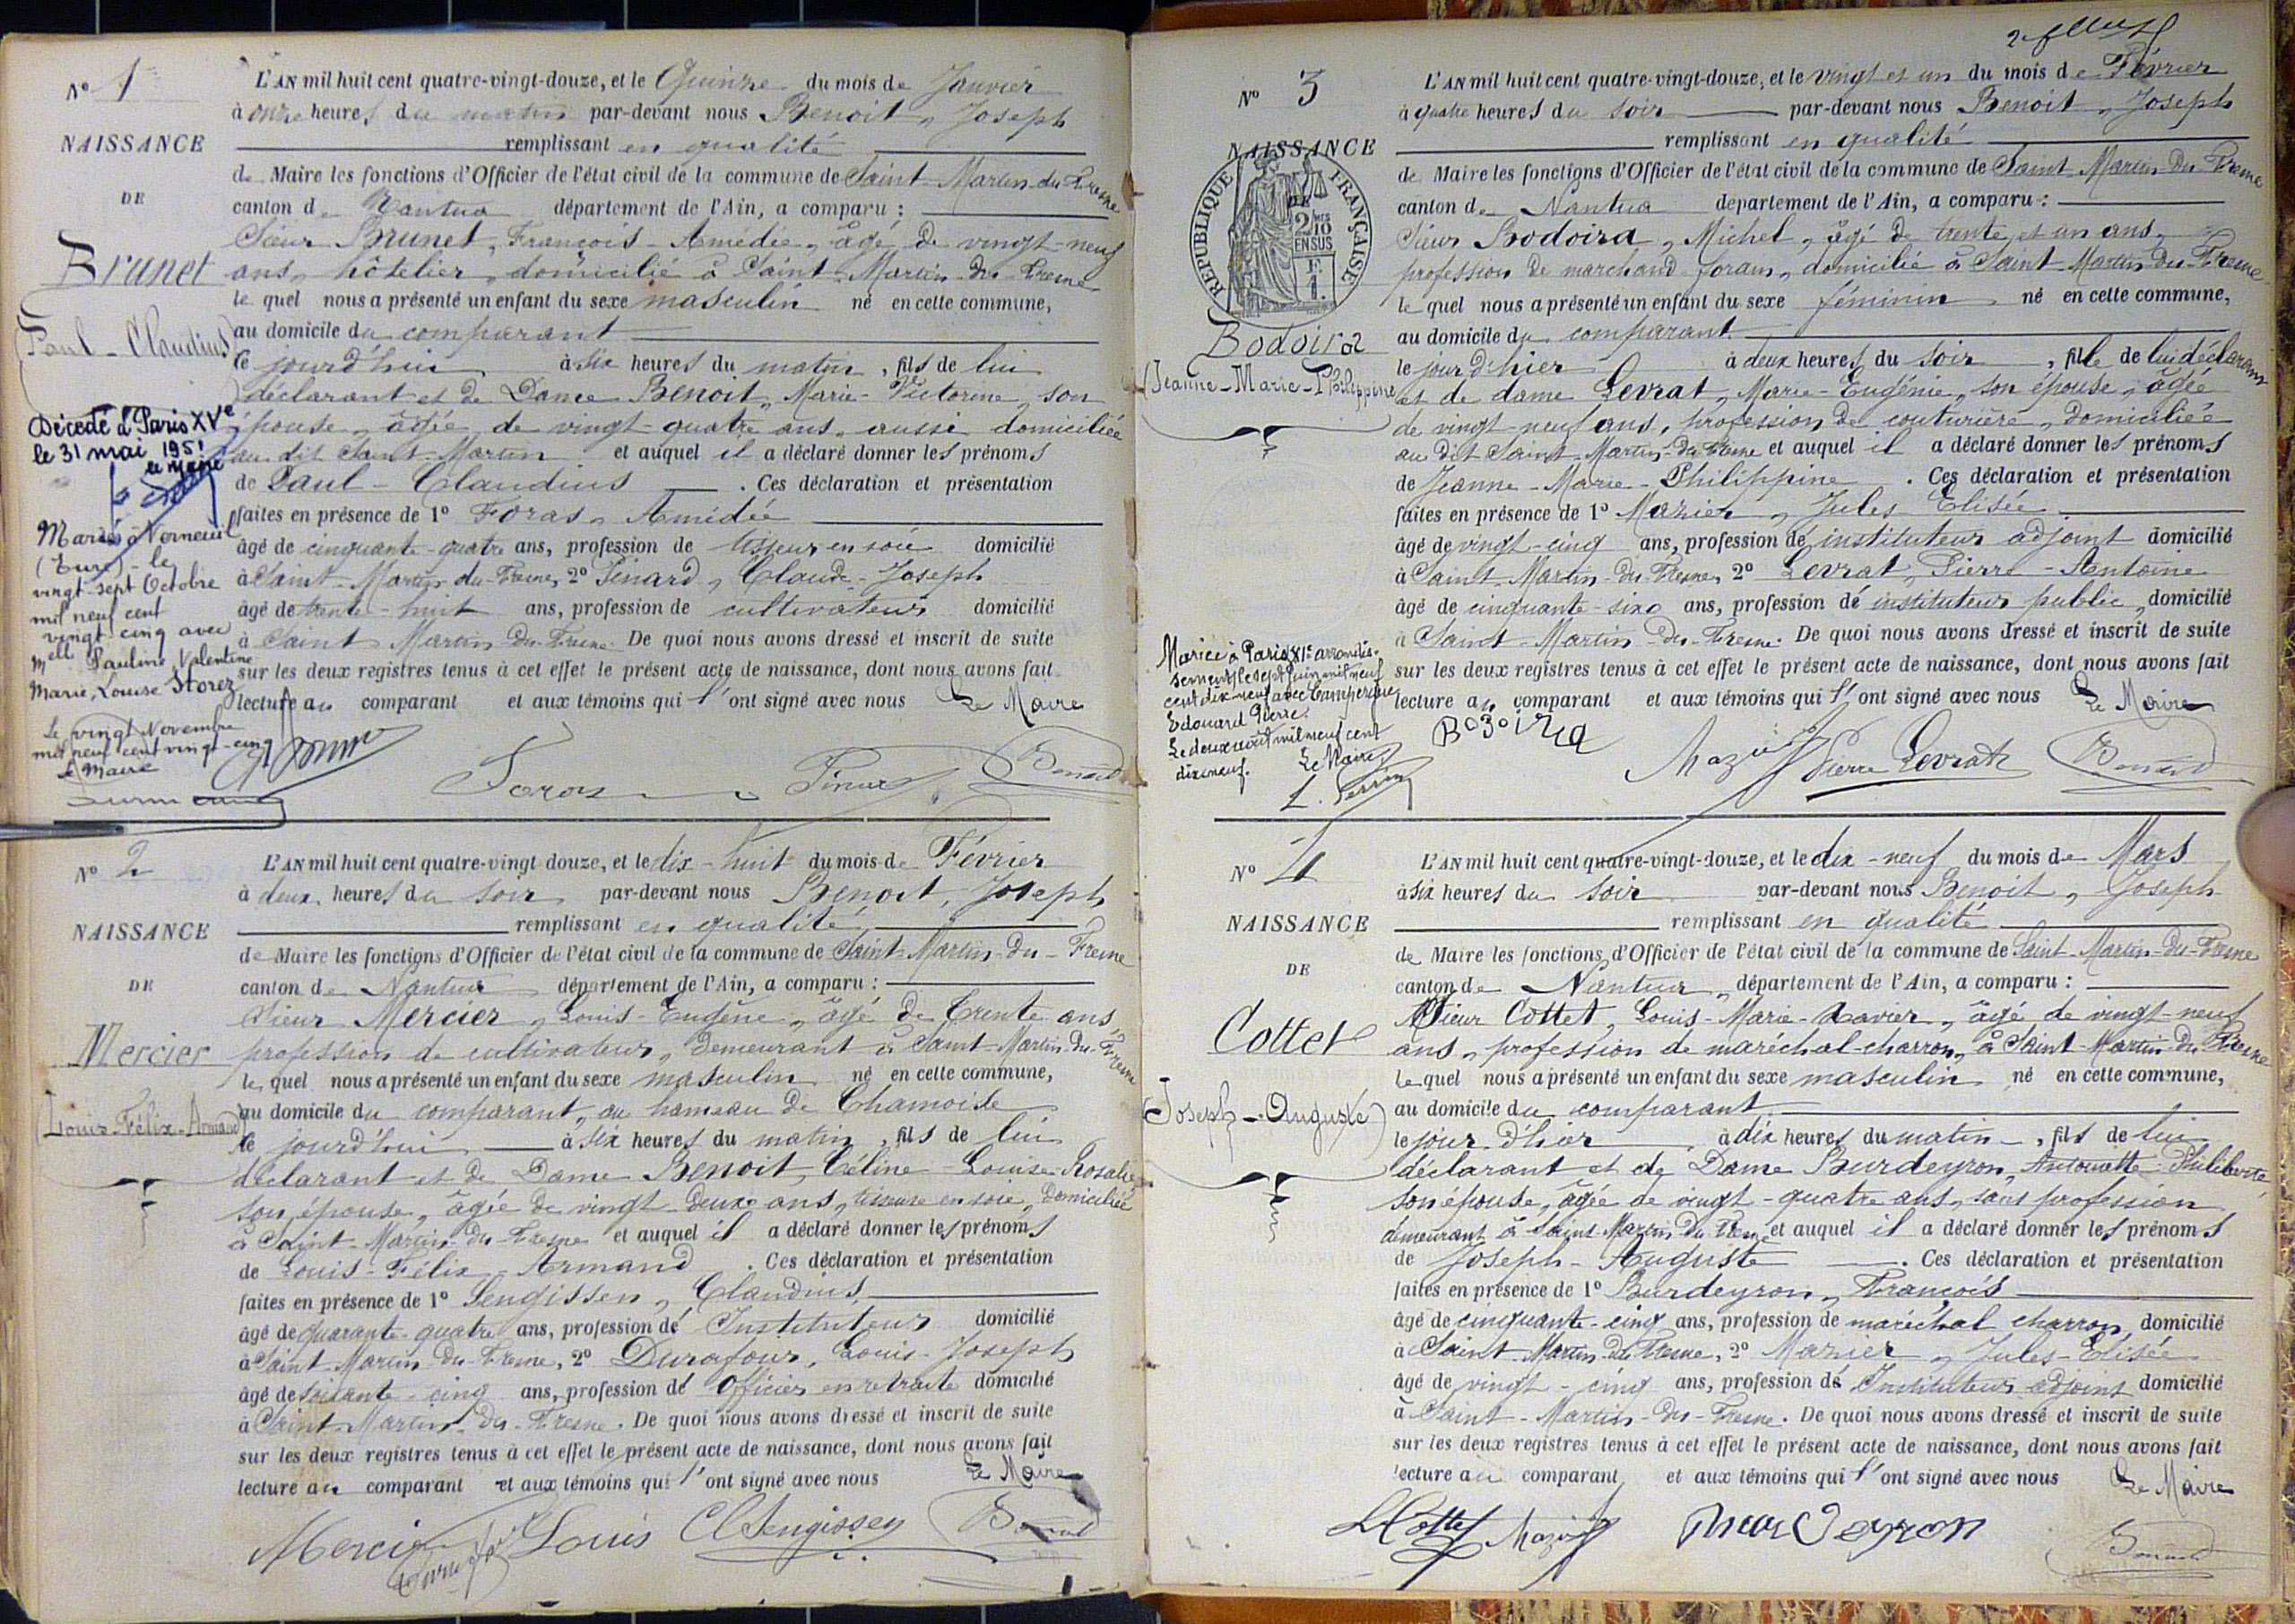 N° 1
NAISSANCE
DE
Brunet
(Paul-Claudius)
Décédé à Paris XVe
le 31 mai 1951
le maire
Marié à Verneuil
(Eure) - le
vingt-sept Octobre
mil neuf cent
vingt-cinq avec
Melle Pauline Valentine
Marie, Louise Storez
Le vingt Novembre
mil neuf cent vingt-cinq
le Maire
L'AN mil huit cent quatre-vingt-douze, et le Quinze du mois de Janvier
à onze heures du matin par-devant nous Benoit, Joseph
remplissant en qualité
de Maire les fonctions d'Officier de l'état civil de la commune de Saint-Martin-du-Fresne
canton de Nantua département de l'Ain, a comparu :
Sieur Brunet, François-Amédée, âgé de vingt-neuf
ans, hôtelier, domicilié à Saint-Martin-du-Fresne
le quel nous a présenté un enfant du sexe masculin né en cette commune,
au domicile du comparant
le jourd'hui à six heures du matin, fils de lui
déclarant et de Dame Benoit, Marie-Victorine, son
épouse, âgée de vingt-quatre ans, aussi domiciliée
au dit Saint-Martin et auquel il a déclaré donner les prénoms
de Paul-Claudius. Ces déclaration et présentation
faites en présence de 1° Foras, Amédée
âgé de cinquante-quatre ans, profession de tisseur en soie domicilié
à Saint-Martin-du-Fresne, 2° Pinard, Claude-Joseph
âgé de trente-huit ans, profession de cultivateur domicilié
à Saint-Martin-du-Fresne. De quoi nous avons dressé et inscrit de suite
sur les deux registres tenus à cet effet le présent acte de naissance, dont nous avons fait
lecture au comparant et aux témoins qui l'ont signé avec nous Le Maire
Foras Pinard Benoit
N° 2
NAISSANCE
DE
Mercier
(Louis-Félix-Armand)
L'AN mil huit cent quatre-vingt-douze, et le dix-huit du mois de Février
à deux heures du soir par-devant nous Benoit, Joseph
remplissant en qualité
de Maire les fonctions d'Officier de l'état civil de la commune de Saint-Martin-du-Fresne
canton de Nantua département de l'Ain, a comparu :
Sieur Mercier, Louis-Eugène, âgé de trente ans,
profession de cultivateur, demeurant à Saint-Martin-du-Fresne
le quel nous a présenté un enfant du sexe masculin né en cette commune,
au domicile du comparant, au hameau de Chamoise
le jourd'hui à six heures du matin, fils de lui
déclarant et de Dame Benoit, Céline-Louise-Rosalie
son épouse, âgée de vingt-deux ans, tisseuse en soie, domiciliée
à Saint-Martin-du-Fresne et auquel il a déclaré donner les prénoms
de Louis-Félix-Armand. Ces déclaration et présentation
faites en présence de 1° Sengissen, Claudius,
âgé de quarante-quatre ans, profession de Instituteur domicilié
à Saint-Martin-du-Fresne, 2° Durafour, Louis-Joseph
âgé de soixante-cinq ans, profession de Officier en retraite domicilié
à Saint-Martin-du-Fresne. De quoi nous avons dressé et inscrit de suite
sur les deux registres tenus à cet effet le présent acte de naissance, dont nous avons fait
lecture au comparant et aux témoins qui l'ont signé avec nous Le Maire
Mercier Louis Cl Sengissen Benoit
N° 3
NAISSANCE
DE
REPUBLIQUE FRANÇAISE
2/10 EN SUS
Bodoira
(Jeanne-Marie-Philippine)
Mariée à Paris XIe arrondis-
sement, le sept juin mil neuf
cent dix neuf avec
Edouard Pierre.
Le deux août mil neuf cent
dix neuf. Le Maire,
L. Perrin
L'AN mil huit cent quatre-vingt-douze, et le vingt et un du mois de Février
à quatre heures du soir par-devant nous Benoit, Joseph
remplissant en qualité
de Maire les fonctions d'Officier de l'état civil de la commune de Saint-Martin-du-Fresne
canton de Nantua département de l'Ain, a comparu :
Sieur Bodoira, Michel, âgé de trente et un ans,
profession de marchand forain, domicilié à Saint-Martin-du-Fresne
le quel nous a présenté un enfant du sexe féminin né en cette commune,
au domicile du comparant
le jour d'hier à deux heures du soir, fille de lui déclarant
et de dame Levrat, Marie-Eugénie, son épouse, âgée
de vingt-neuf ans, profession de couturière, domiciliée
au dit Saint-Martin-du-Fresne et auquel il a déclaré donner les prénoms
de Jeanne-Marie-Philippine. Ces déclaration et présentation
faites en présence de 1° Mazier, Jules-Elisée
âgé de vingt-cinq ans, profession de instituteur adjoint domicilié
à Saint-Martin-du-Fresne, 2° Levrat, Pierre-Antoine
âgé de cinquante-six ans, profession de instituteur public, domicilié
à Saint-Martin-du-Fresne. De quoi nous avons dressé et inscrit de suite
sur les deux registres tenus à cet effet le présent acte de naissance, dont nous avons fait
lecture au comparant et aux témoins qui l'ont signé avec nous Le Maire
Bodoira Mazier Pierre Levrat Benoit
N° 4
NAISSANCE
DE
Cottet
(Joseph-Auguste)
L'AN mil huit cent quatre-vingt-douze, et le dix-neuf du mois de Mars
à six heures du soir par-devant nous Benoit, Joseph
remplissant en qualité
de Maire les fonctions d'Officier de l'état civil de la commune de Saint-Martin-du-Fresne
canton de Nantua, département de l'Ain, a comparu :
Sieur Cottet, Louis-Marie-Xavier, âgé de vingt-neuf
ans, profession de maréchal-charron, à Saint-Martin-du-Fresne
le quel nous a présenté un enfant du sexe masculin né en cette commune,
au domicile du comparant
le jour d'hier à dix heures du matin, fils de lui
déclarant et de Dame Burdeyron, Antoinette-Philiberte,
son épouse, âgée de vingt-quatre ans, sans profession
demeurant à Saint-Martin-du-Fresne et auquel il a déclaré donner les prénoms
de Joseph-Auguste. Ces déclaration et présentation
faites en présence de 1° Burdeyron, François
âgé de cinquante-cinq ans, profession de maréchal charron, domicilié
à Saint-Martin-du-Fresne, 2° Mazier, Jules-Elisée
âgé de vingt-cinq ans, profession de Instituteur adjoint domicilié
à Saint-Martin-du-Fresne. De quoi nous avons dressé et inscrit de suite
sur les deux registres tenus à cet effet le présent acte de naissance, dont nous avons fait
lecture au comparant et aux témoins qui l'ont signé avec nous Le Maire
LCottet Mazier Benoit